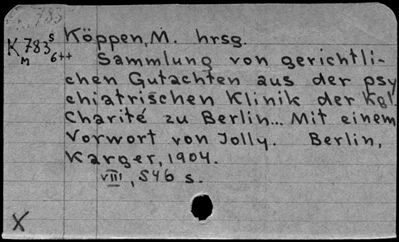 783
K 783 s Köppen, M. hrsg.
M 6++ Sammlung von gerichtli-
chen Gutachten aus der psy
chiatrischen Klinik der Kgl.
Charité zu Berlin... Mit einem
Vorwort von Jolly. Berlin,
Karger, 1904.
VIII, 546 s.
X